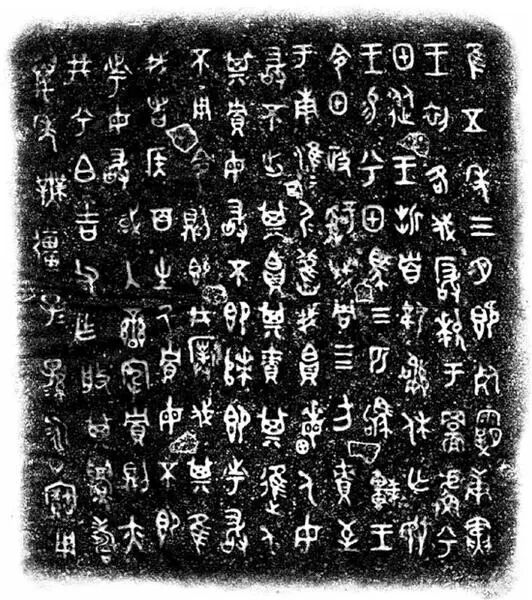 隹五年三月既死霸庚寅
王初各伐玁狁于䣙𧇭兮
甲從王折首執訊休亡敃
王易兮甲馬四匹駒車王
令甲政𤔲成周四方責至
于南淮尸淮尸舊我帛畮人毋
敢不出其帛其責其進人
其貯毋敢不即次即市敢
不用令則即井撲伐其隹
我者侯百生厥貯毋不即
市毋敢或入蠻宄貯則亦
井兮白吉父乍般其眉壽
萬年無疆子子孫孫永寶用